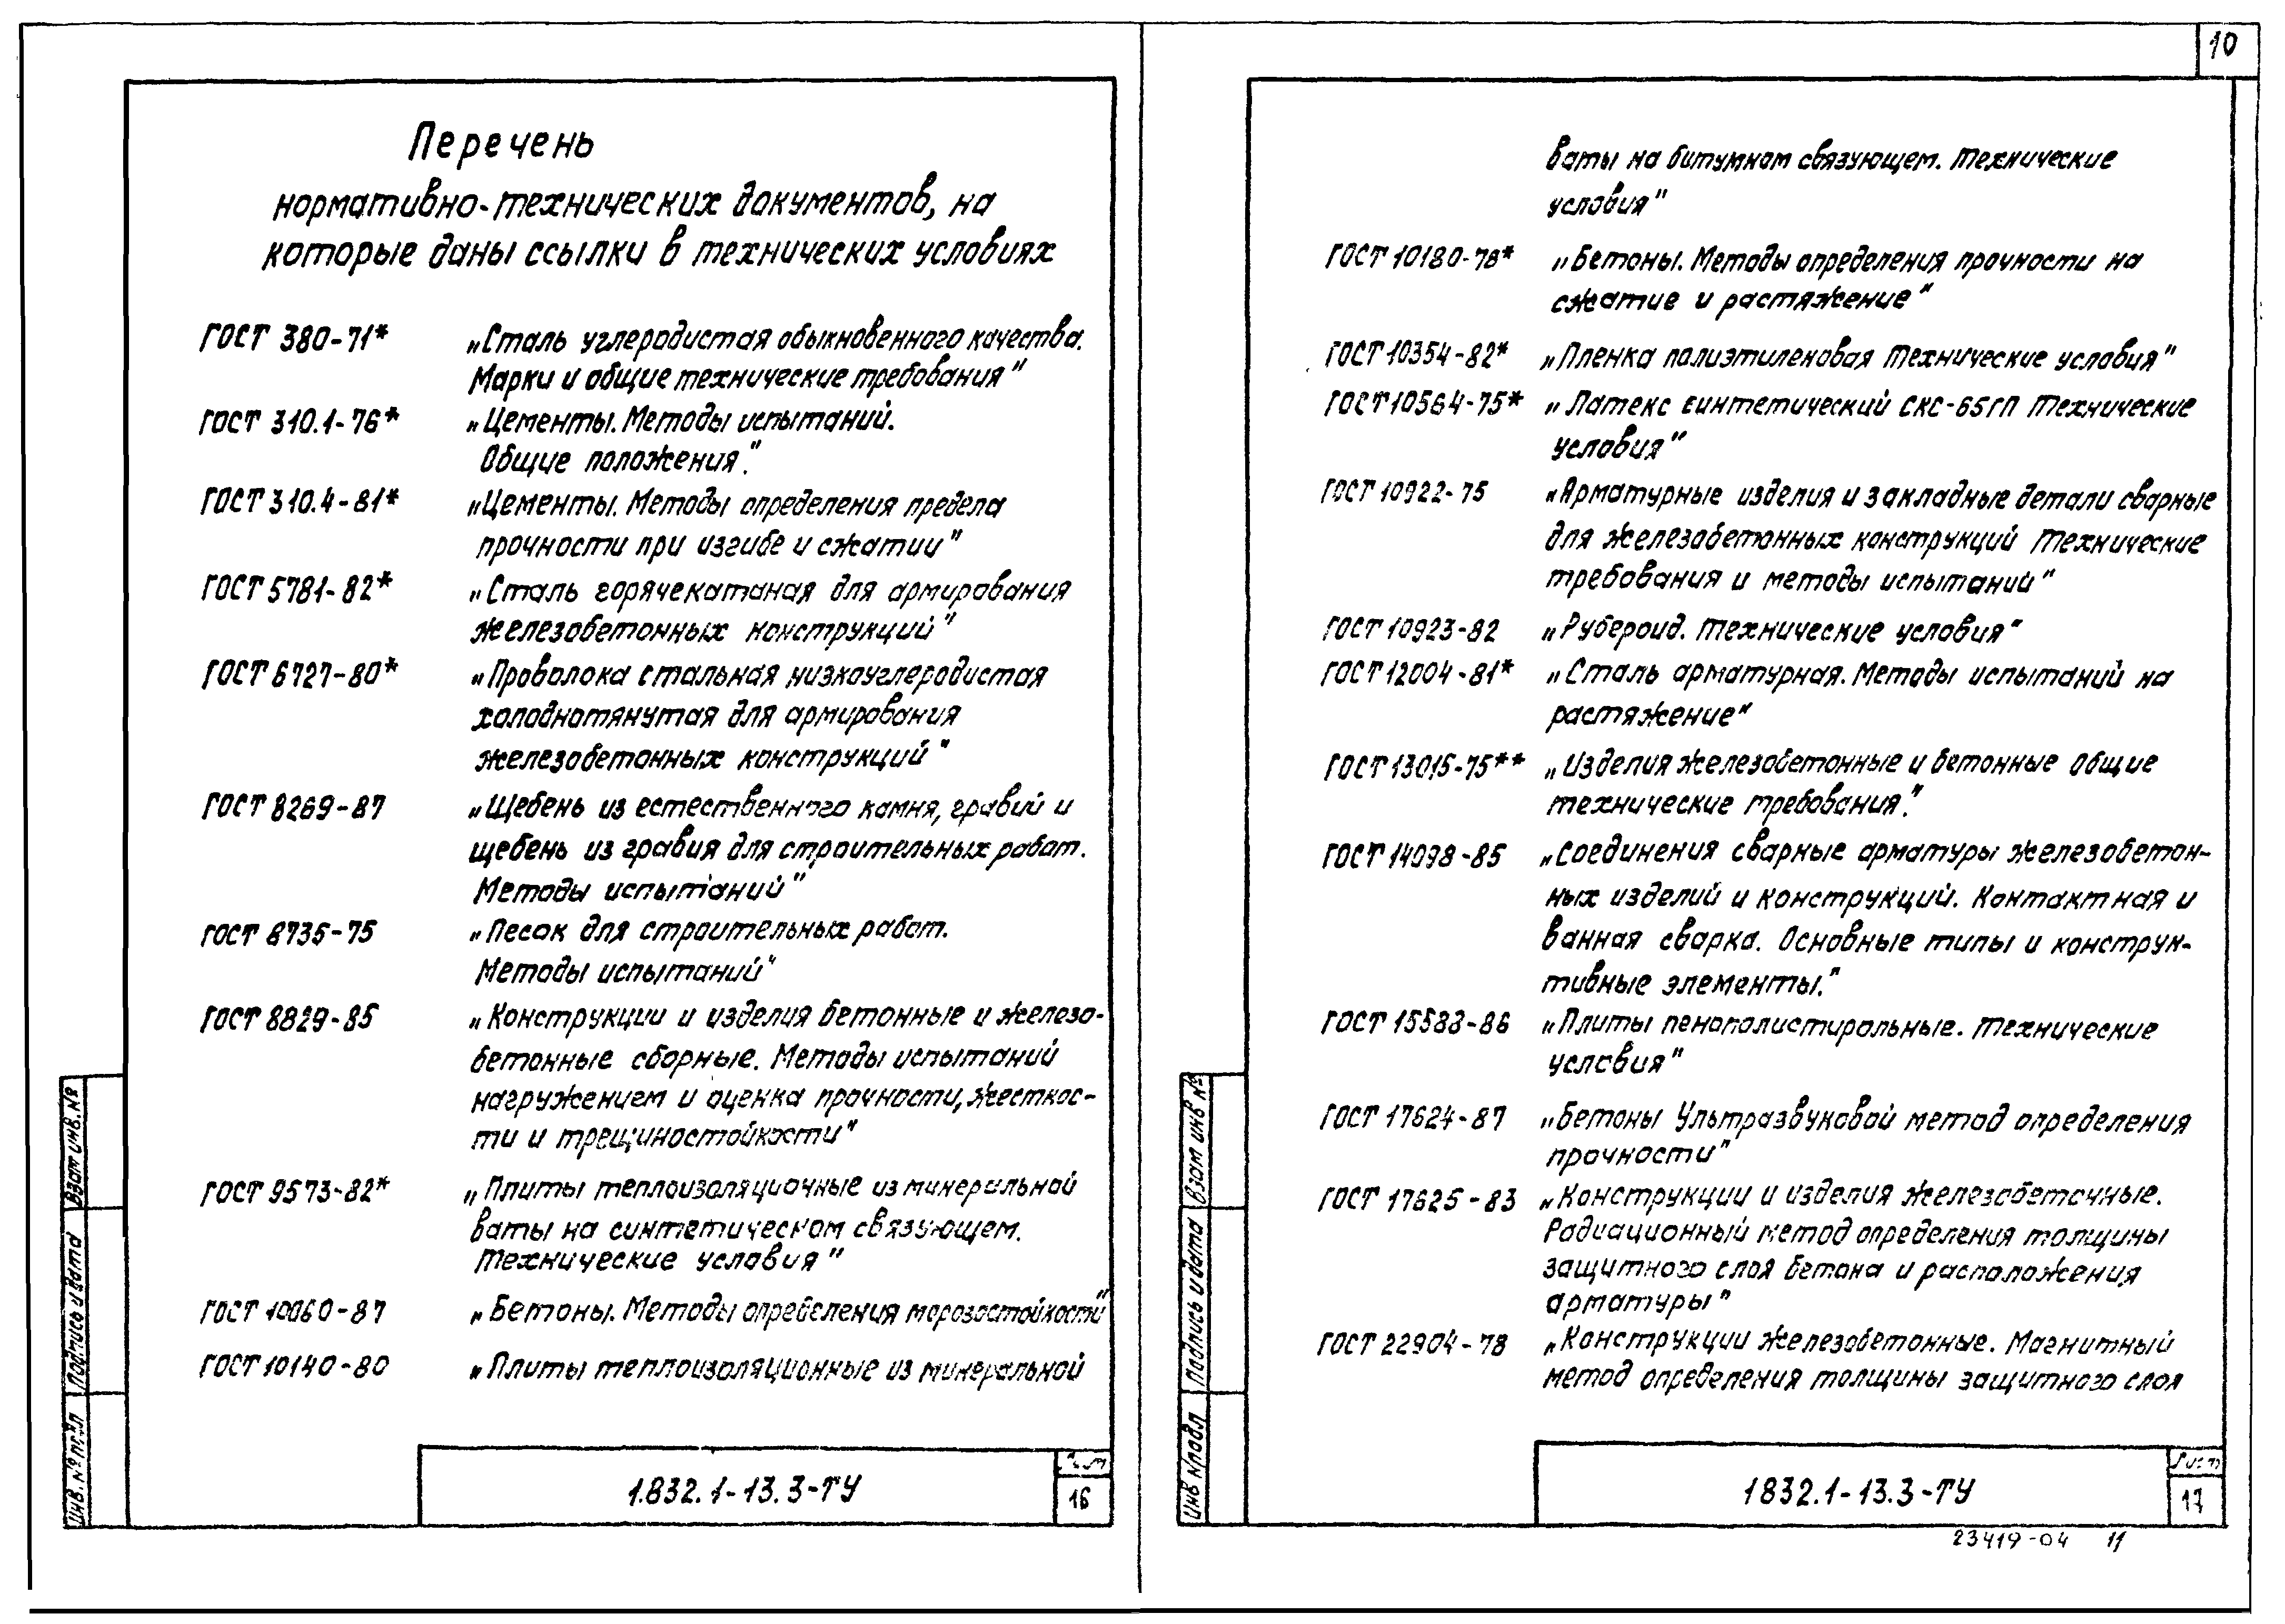 10
Перечень
нормативно-технических документов, на
которые даны ссылки в технических условиях
ГОСТ 380-71* „Сталь углеродистая обыкновенного качества.
Марки и общие технические требования"
ГОСТ 310.1-76* „Цементы. Методы испытаний.
Общие положения."
ГОСТ 310.4-81* „Цементы. Методы определения предела
прочности при изгибе и сжатии"
ГОСТ 5781-82* „Сталь горячекатаная для армирования
железобетонных конструкций"
ГОСТ 6727-80* „Проволока стальная низкоуглеродистая
холоднотянутая для армирования
железобетонных конструкций"
ГОСТ 8269-87 „Щебень из естественного камня, гравий и
щебень из гравия для строительных работ.
Методы испытаний"
ГОСТ 8735-75 „Песок для строительных работ.
Методы испытаний"
ГОСТ 8829-85 „Конструкции и изделия бетонные и железо-
бетонные сборные. Методы испытаний
нагружением и оценка прочности, жесткос-
ти и трещиностойкости"
ГОСТ 9573-82* „Плиты теплоизоляционные из минеральной
ваты на синтетическом связующем.
Технические условия"
ГОСТ 10060-87 „Бетоны. Методы определения морозостойкости"
ГОСТ 10140-80 „Плиты теплоизоляционные из минеральной
Инв. № подл Подпись и дата Взам инв. №
1.832.1-13.3-ТУ
Лист
16
ваты на битумном связующем. Технические
условия"
ГОСТ 10180-78* „Бетоны. Методы определения прочности на
сжатие и растяжение"
ГОСТ 10354-82* „Пленка полиэтиленовая Технические условия"
ГОСТ 10564-75* „Латекс синтетический СКС-65ГП Технические
условия"
ГОСТ 10922-75 „Арматурные изделия и закладные детали сварные
для железобетонных конструкций Технические
требования и методы испытаний"
ГОСТ 10923-82 „Рубероид. Технические условия"
ГОСТ 12004-81* „Сталь арматурная. Методы испытаний на
растяжение"
ГОСТ 13015-75** „Изделия железобетонные и бетонные Общие
технические требования."
ГОСТ 14098-85 „Соединения сварные арматуры железобетон-
ных изделий и конструкций. Контактная и
ванная сварка. Основные типы и конструк-
тивные элементы."
ГОСТ 15588-86 „Плиты пенополистирольные. Технические
условия"
ГОСТ 17624-87 „Бетоны Ультразвуковой метод определения
прочности"
ГОСТ 17625-83 „Конструкции и изделия железобетонные.
Радиационный метод определения толщины
защитного слоя бетона и расположения
арматуры"
ГОСТ 22904-78 „Конструкции железобетонные. Магнитный
метод определения толщины защитного слоя
Инв № подл Подпись и дата Взам инв №
1832.1-13.3-ТУ
Лист
17
23419-04 11